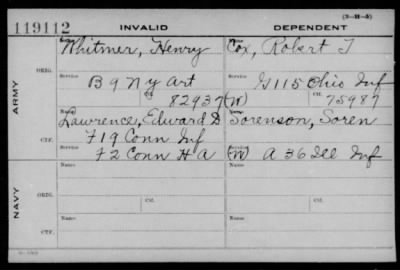 (3-H-5)
119112 INVALID DEPENDENT
Whitmer, Henry Cox, Robert T
ORIG. Service Service
B 9 N y Art G 115 Ohio Inf
Ctf. 82937 (W) Ctf. 75987
ARMY
Name Name
Lawrence, Edward D Sorenson, Soren
CTF. Service Service
F 19 Conn Inf
F 2 Conn H A (W) A 36 Ill Inf
Name Name
ORIG. Service Service
Ctf. Ctf.
NAVY
Name Name
CTF. Service Service